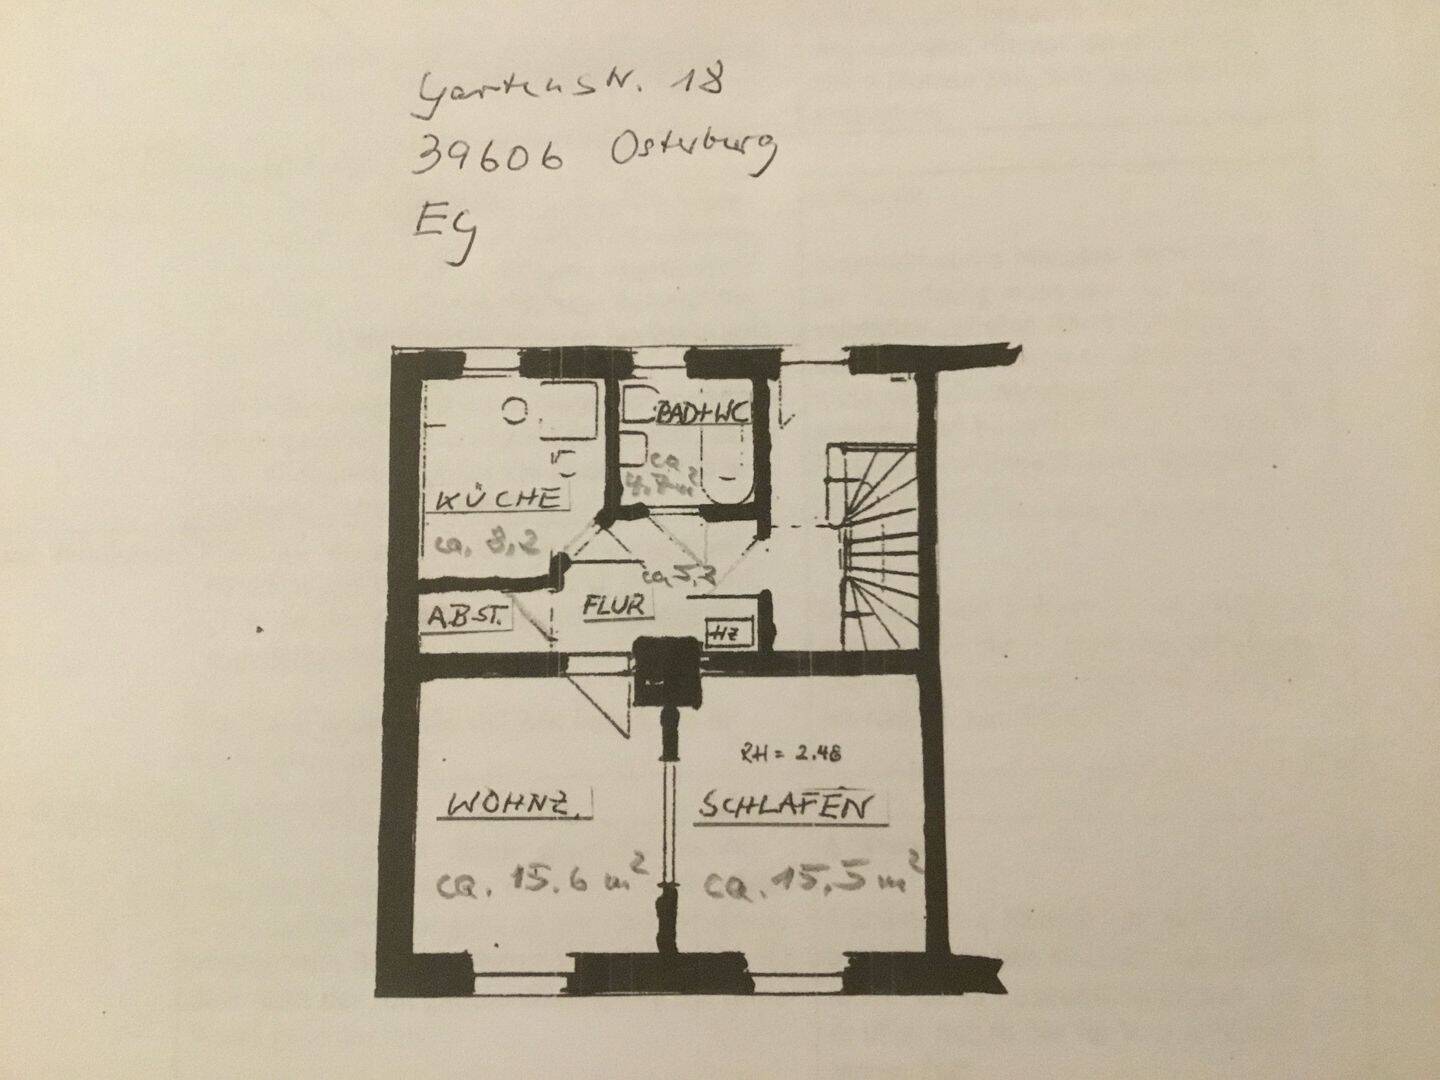 Gartenstr. 18
39606 Osterburg
EG
BAD+WC
ca
4.7m²
KÜCHE
ca. 8,2
ca 5,2
ABST.
FLUR
HZ
RH = 2.48
WOHNZ.
SCHLAFEN
ca. 15.6 m²
ca. 15,5 m²